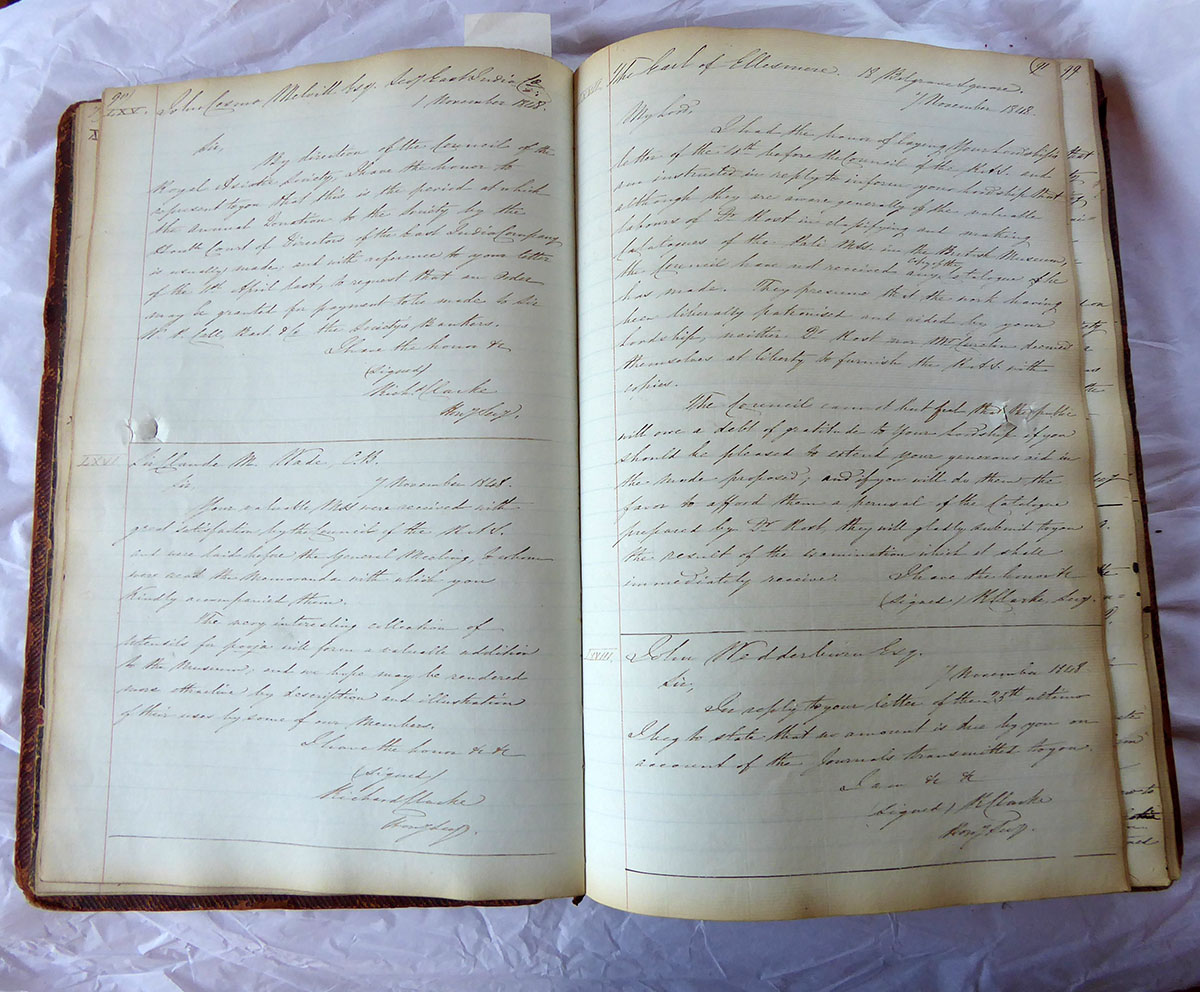 90
LXV. John Cosmo Melvill Esq. Secy East India Co
1 November 1848.
Sir,
By direction of the Council of the
Royal Asiatic Society, I have the honor to
represent to you that this is the period at which
the annual Donation to the Society by the
Court of Directors of the East India Company
is usually made, and with reference to your letter
of the 5th April last, to request that an order
may be granted for payment to be made to Sir
Bart &c the Society's Bankers.
I have the honor &c
(Signed)
Richd Clarke
Hony Secy.
LXVI Sir Claude M. Wade, C.B.
Sir, 7 November 1848.
Your valuable MSS were received with
great satisfaction by the Council of the R.A.S.
and were laid before the General Meeting, to whom
were read the Memoranda with which you
kindly accompanied them.
The very interesting collection of
utensils for pooja will form a valuable addition
to the Museum, and we hope may be rendered
more attractive by description and illustration
of their uses by some of our Members.
I have the honor &c &c
(Signed)
Richard Clarke
Hony Secy.
91
The Earl of Ellesmere. 18 Belgrave Square.
7 November 1848.
My Lord,
I had the honor of laying Your Lordship's
letter of the 4th before the Council of the R.A.S. and
am instructed in reply to inform your Lordship that
although they are aware generally of the valuable
labours of Dr Rost in classifying and making
Catalogues of the Pali MSS in the British Museum,
the Council have not received any copy of the Catalogue he
has made. They presume that the work having
been liberally patronised and aided by your
Lordship, neither Dr Rost nor Mr Cureton deemed
themselves at liberty to furnish the R.A.S. with
copies.
The Council cannot but feel that the public
will owe a debt of gratitude to Your Lordship if you
should be pleased to extend your generous aid in
the mode proposed; and if you will do them the
favor to afford them a perusal of the Catalogue
prepared by Dr Rost they will gladly submit to you
the result of the examination which it shall
immediately receive. I have the honor &c
(Signed) R Clarke Secy.
LXVIII. John Wedderburn Esq.
7 November 1848
Sir,
In reply to your letter of the 25th ultimo
I beg to state that no amount is due by you on
account of the Journals transmitted to you
I am &c &c
(Signed) R Clarke
Hony Secy.